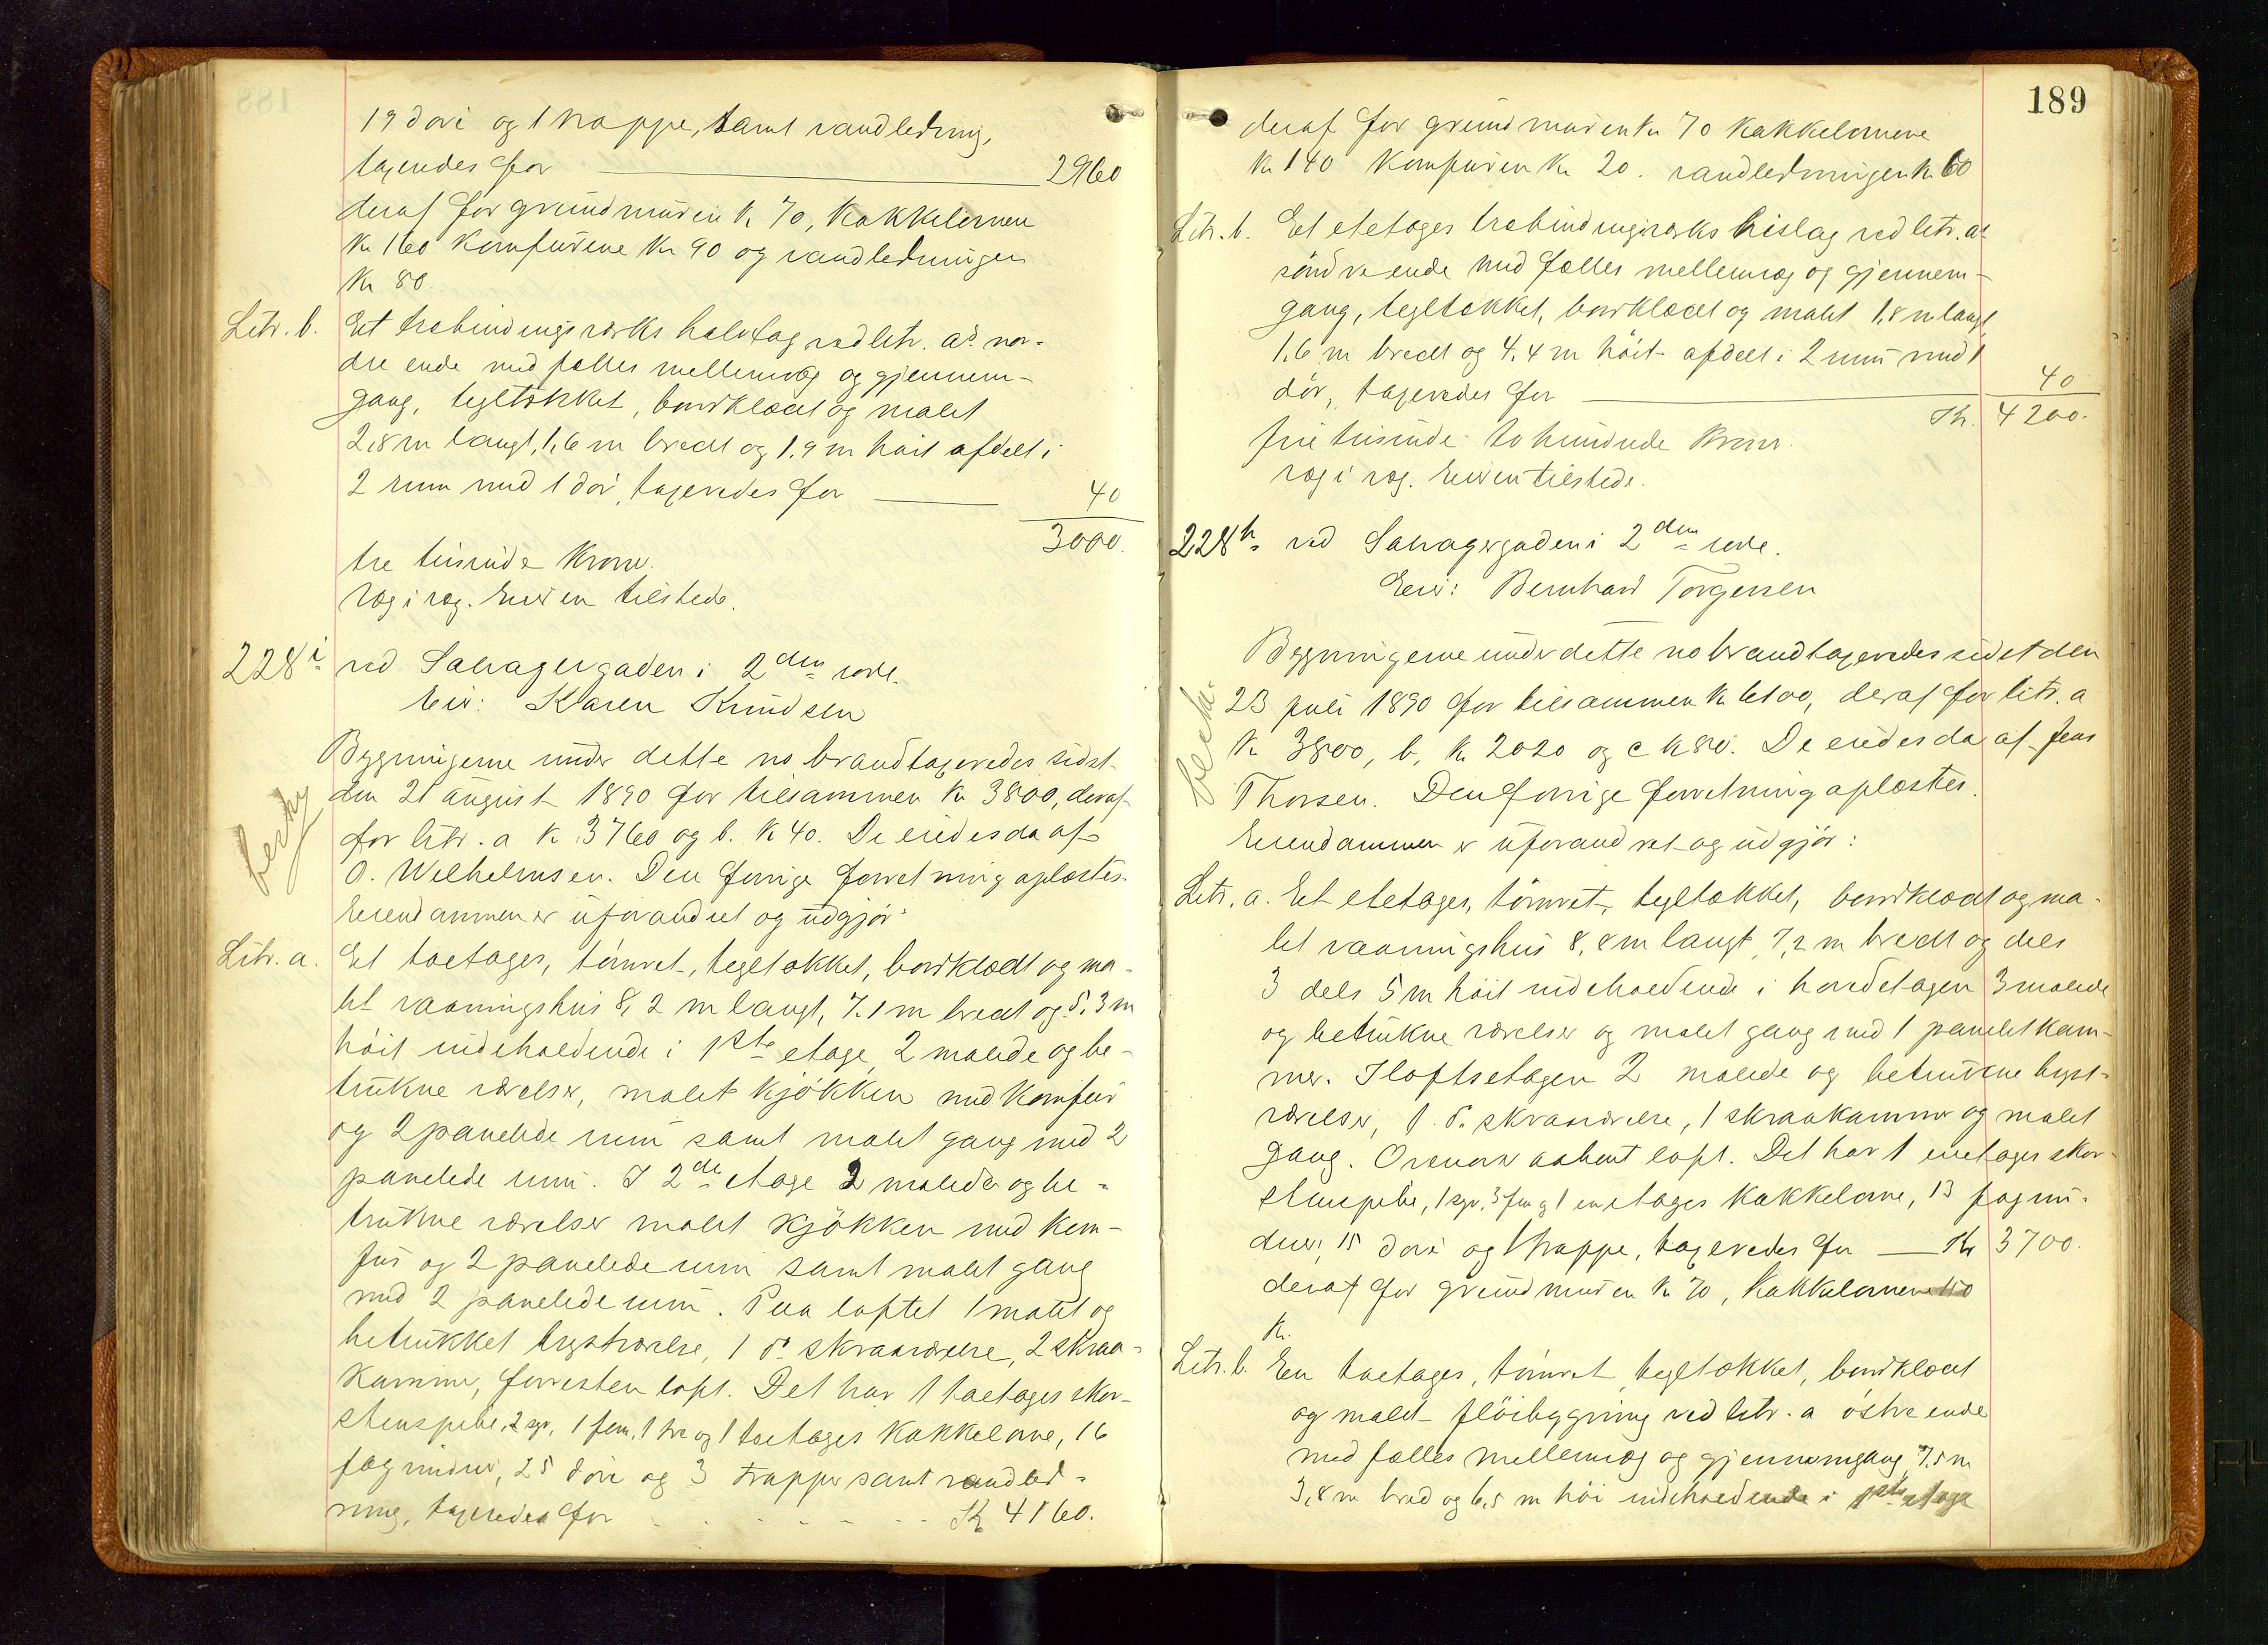 19 döre og 1 trappe, samt vandledning,
taxeredes for 2960
deraf for grundmuren k. 70, kakkelovnene
kr 160 komfurene kr 90 og vandledningen
kr 80
Litr. b. Et trebindingsværks halvtag ved litr. a's nor-
dre ende med fælles mellemvæg og gjennem-
gang, tegltækket, bordklædt og malet
2,8 m langt, 1,6 m bredt og 1,9 m höit afdelt i
2 rum med 1 dör, taxeredes for 40
3000.
tre tusinde kroner.
Væg i væg. Eieren tilstede.
228 i ved Lavagergaden i 2den rode.
Eier: Karen Knudsen
Bygningerne under dette no brandtaxeredes sidst
den 21 august 1890 for tilsammen kr 3800, deraf
for litr. a k 3760 og b. k 40. De eiedes da af
O. Wilhelmsen. Den forrige forretning oplæstes.
Eiendommen er uforandret og udgjör:
Litr. a. Et toetages, tömret, tegltækket, bordklædt og ma-
let vaaningshus 8,2 m langt, 7,1 m bredt og 5,3 m
höit indeholdende i 1ste etage 2 malede og be-
trukne værelser, malet kjökken med komfur
og 2 panelede rum samt malet gang med 2
panelede rum. I 2de etage 2 malede og be-
trukne værelser malet kjökken med kom-
fur og 2 panelede rum samt malet gang
med 2 panelede rum. Paa loftet 1 malet og
betrukket kvistværelse, 1 do skraaværelse, 2 skraa-
kammer, forresten loft. Det har 1 toetages skor-
stenspibe, 2 syv, 1 fem, 1 tre og 1 toetages kakkelovne, 16
fag vinduer, 25 döre og 3 trapper samt vandled-
ning, taxeredes for Kr 4160.
189
deraf for grundmuren kr 70 kakkelovnene
kr 140 komfuren kr 20. vandledningen kr 60
Litr. b. Et etetages trebindingsværks bislag ved litr. a's
söndre ende med fælles mellemvæg og gjennem-
gang, tegltækket, bordklædt og malet 1,8 m langt
1,6 m bredt og 4,4 m höit afdelt i 2 rum med 1
dör, taxeredes for 40
Kr. 4200.
fire tusinde to hundrede kroner.
væg i væg. Eieren tilstede.
228 h ved Lavagergaden i 2den rode.
Eier: Bernhard Torgersen
Bygningerne under dette no brandtaxeredes sidst den
23 juli 1890 for tilsammen k 6100, deraf for litr. a
k 3800, b, k 2020 og c k 80. De eiedes da af Jens
Thorsen. Den forrige forretning oplæstes.
Eiendommen er uforandret og udgjör:
Litr. a. Et etetages, tömret, tegltækket, bordklædt og ma-
let vaaningshus 8,8 m langt 7,2 m bredt og dels
3 dels 5 m höit indeholdende i hovedetagen 3 malede
og betrukne værelser og malet gang med 1 panelet kam-
mer. I loftsetagen 2 malede og betrukne kvist-
værelser, 1 do skraaværelse, 1 skraakammer og malet
gang. Ovenover aabent loft. Det har 1 enetages skor-
stenspibe, 1 syv, 3 fem og 1 enetages kakkelovne, 13 fag vin-
duer, 15 döre og 1 trappe, taxeredes for Kr 3700.
deraf for grundmuren kr 70, kakkelovnene
kr.
Litr. b. En toetages, tömret tegltækket, bordklædt
og malet flöibygning ved litr. a östre ende
med fælles mellemvæg og gjennemgang 7,5 m
3,8 m bred og 6,5 m höi indeholdende i 1ste etage